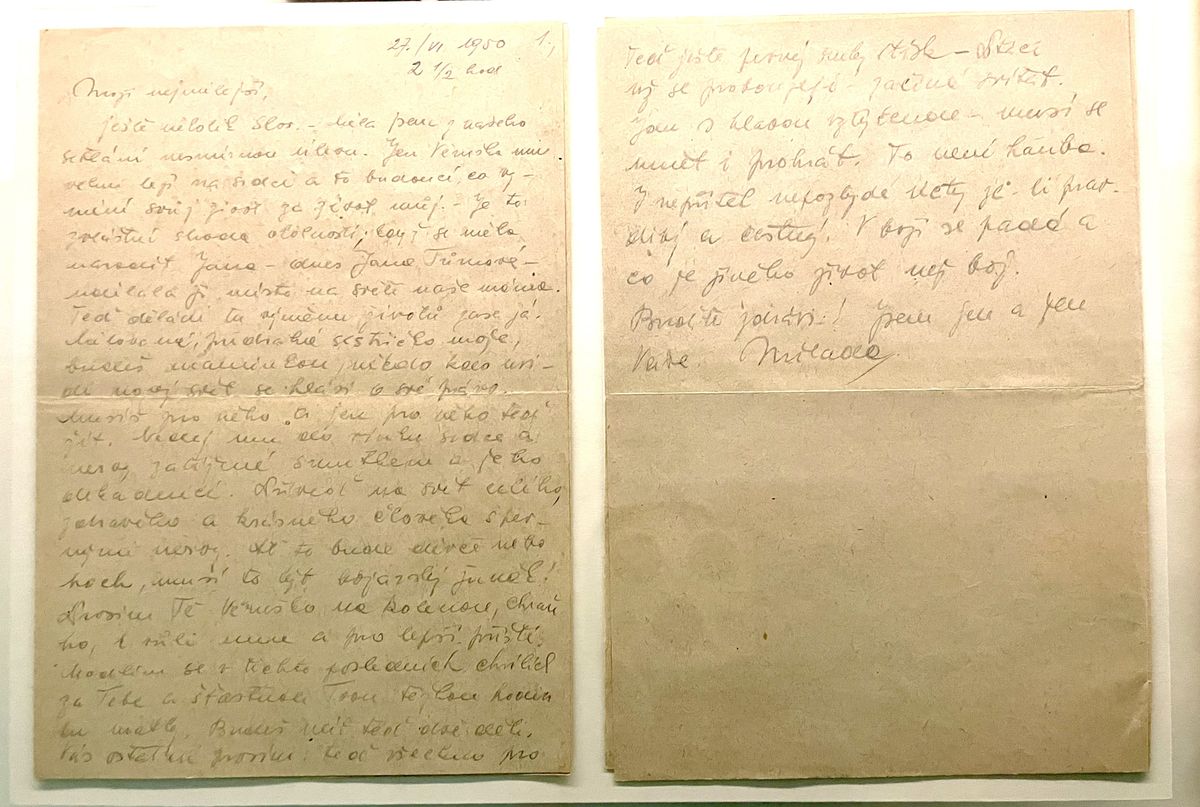 27./VI 1950 1.,
2 1/2 hod
Moji nejmilejší,
ještě několik slov. – Měla jsem z našeho
setkání nesmírnou útěchu. Jen Věruška mi
velmi leží na srdci a to budoucí, co vy-
mění svůj život za život můj. – Je to
zvláštní shoda okolností, když se měla
narodit Jana – dnes Jana Tůmová –
udělala jí místo na světě naše máma.
Teď dělám tu výměnu životů zase já.
Milovaná, předrahá sestřičko moje,
budeš maminkou, někdo kdo uvi-
dí nový svět se hlásí o své právo.
Musíš pro něho a jen pro něho teď
žít. Nedej mu do vínku srdce a
nervy zatížené smutkem a jeho
. Přiveď na svět celého,
zdravého a krásného člověka s pev-
nými nervy. Ať to bude děvče nebo
hoch, musí to být bojovný junák!
Prosím Tě Věruško na kolenou, chraň
ho, k vůli mne a pro lepší příští.
Modlím se v těchto posledních chvílích
za Tebe a šťastnou Tvou těžkou hodin
ku matky. Budeš mít teď dvě děti.
Vás ostatní prosím: teď všechno pro
Teď ještě prvý snuby – Ptáci
už se probouzejí – začíná svítat.
Jdu s hlavou vztyčenou – musí se
umět i prohrát. To není hanba.
I nepřítel nepozbyde úcty je-li prav-
divý a čestný. V boji se padá a
co je jiného život než boj.
Buďte zdrávi! Jsem jen a jen
Vaše. Milada